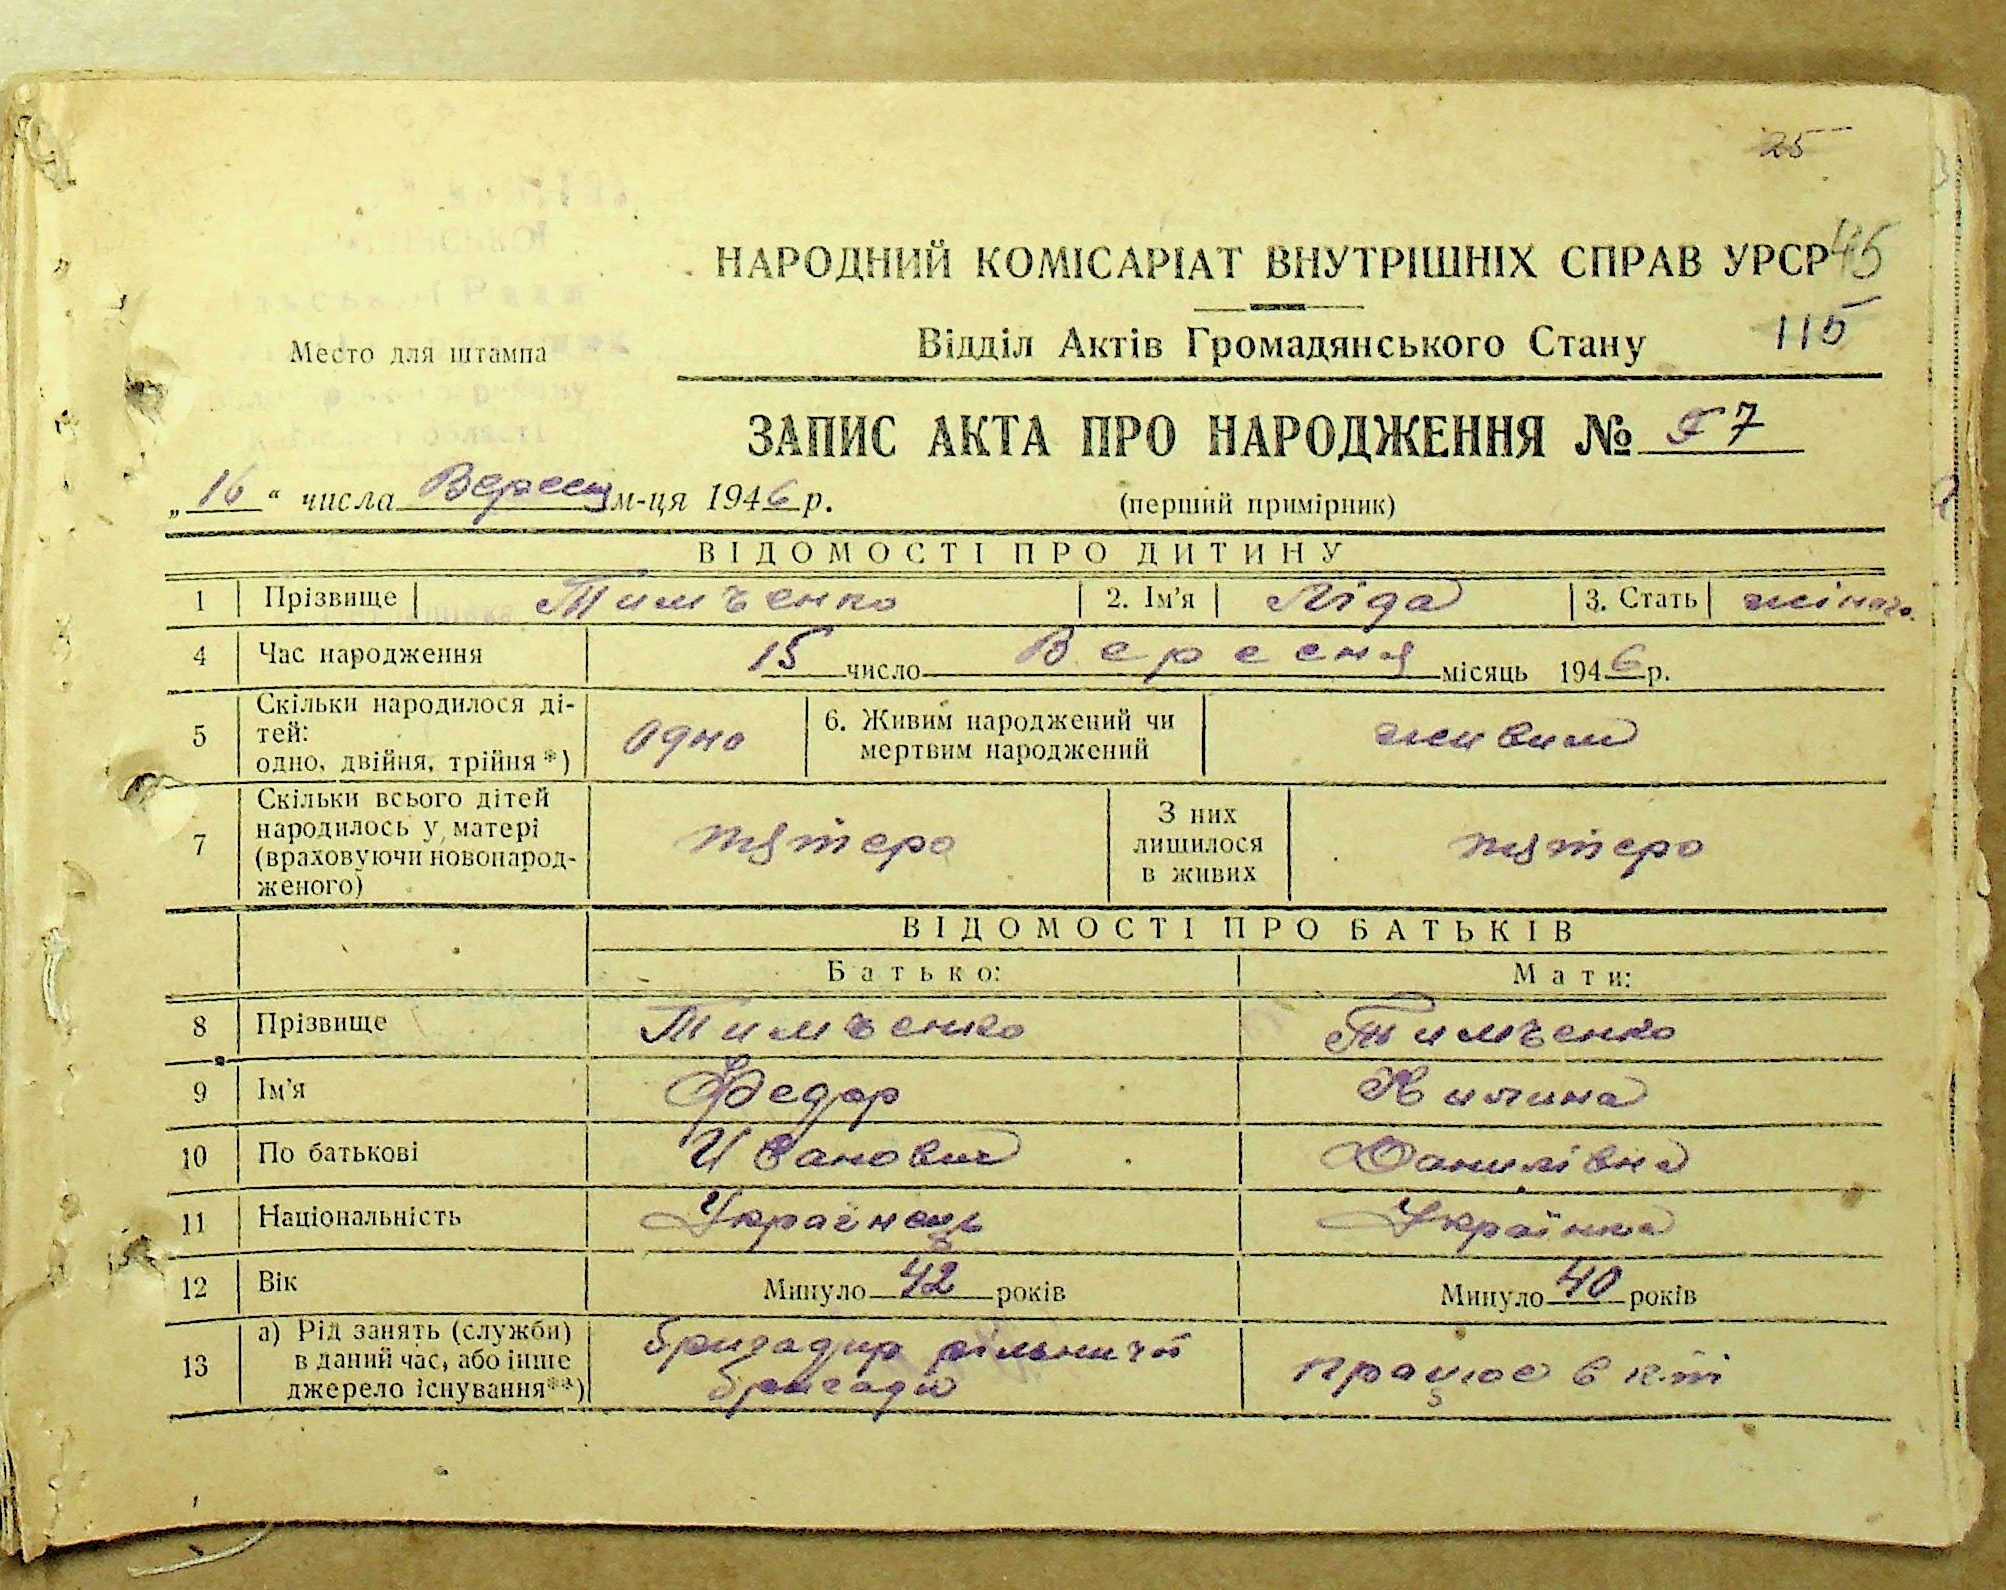 25
НАРОДНИЙ КОМІСАРІАТ ВНУТРІШНІХ СПРАВ УРСР
45
Відділ Актів Громадянського Стану
115
Место для штампа
ЗАПИС АКТА ПРО НАРОДЖЕННЯ № 57
„16“ числа Вересня м-ця 1946 р.
(перший примірник)
ВІДОМОСТІ ПРО ДИТИНУ
1 Прізвище Тимченко 2. Ім'я Ліда 3. Стать жіноча
4 Час народження 15 число Вересня місяць 1946 р.
5 Скільки народилося ді-
тей:
одно, двійня, трійня *) одно
6. Живим народжений чи
мертвим народжений живим
7 Скільки всього дітей
народилось у матері
(враховуючи новонарод-
женого) пятеро
З них
лишилося
в живих пятеро
ВІДОМОСТІ ПРО БАТЬКІВ
Батько: Мати:
8 Прізвище Тимченко Тимченко
9 Ім'я Федор Килина
10 По батькові Иванович Данилівна
11 Національність Українець Українка
12 Вік Минуло 42 років Минуло 40 років
13 а) Рід занять (служби)
в даний час, або інше
джерело існування**)
бригадир рільничої
бригади
працює в к-ті